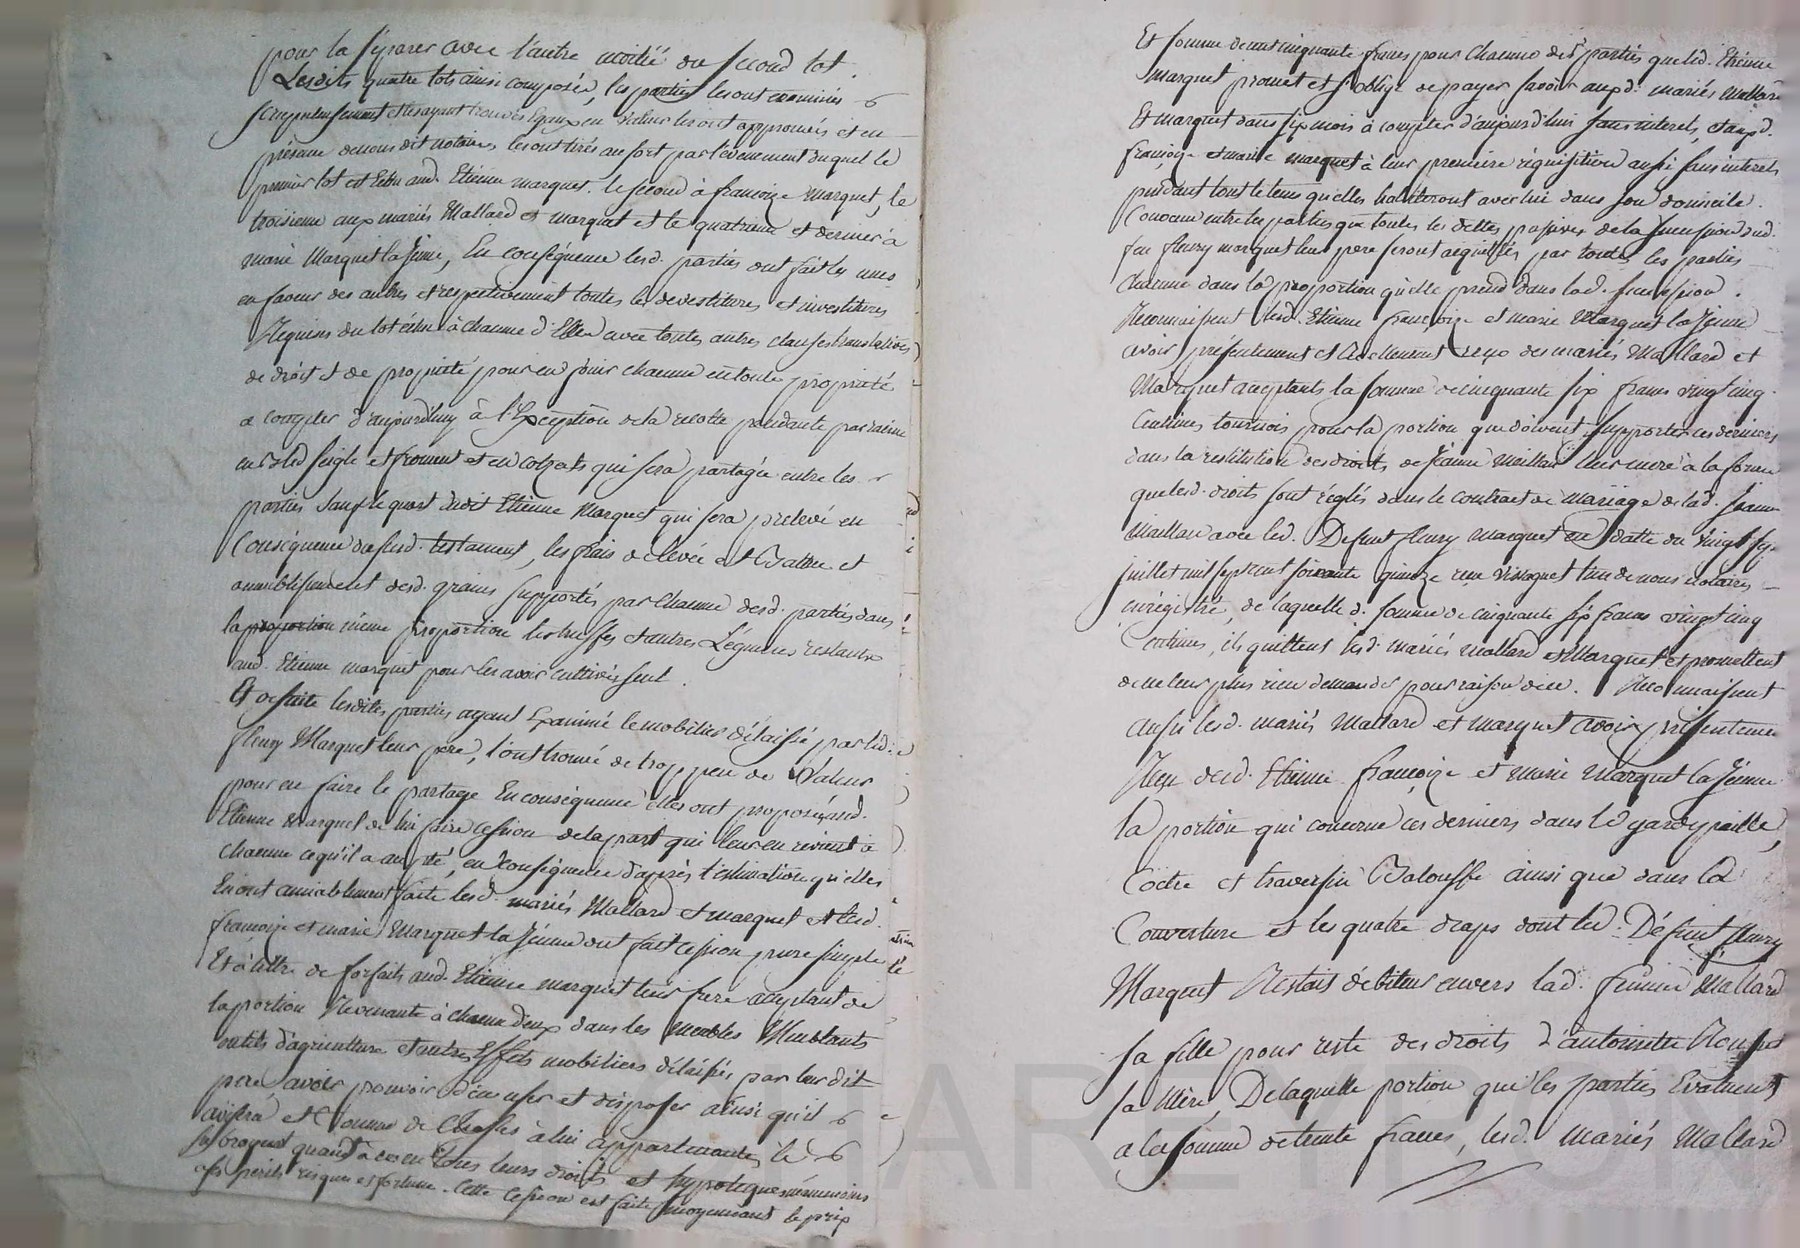 pour la séparer avec l'autre moitié du second lot.
Lesdits quatre lots ainsi composés, les parties les ont examinés
scrupuleusement et les ayant trouvés Egaux en valeur les ont approuvés et en
présence de nous dit notaires les ont tirés au sort par l'évènement duquel le
premier lot est échu aud. Etienne marquet. le second à françoise marquet, le
troisieme aux mariés Mallard et marquet et le quatrieme et dernier à
marie Marquet la Jeune, En conséquence lesd. parties ont fait les unes
en faveur des autres et respectivement toutes les devestitures et investitures
Requises du lot échu à chacune d'Elles avec toutes autres clauses translatives
de droit et de propriété pour en jouir chacune en toute propriété
a compter d'aujourdhuy à l'Exception de la recolte pendante par racine
en bled seigle et froment et en colzats qui sera partagée entre les
parties sauf le quart dudit Etienne Marquet qui sera prelevé en
Conséquence du susd. testament, les frais de levée et Battue et
ameublissement desd. grains supportés par chacune desd. parties dans
la proportion même proportion les truffes et autres Légumes restants
aud. Etienne marquet pour les avoir cultivés seul.
Et de suite lesdites parties ayant Examiné le mobilier délaissé par led.
fleury Marquet leur père, l'ont trouvé de trop peu de Valeur
pour en faire le partage En conséquence elles ont proposé aud.
Etienne Marquet de lui faire cession de la part qui leur en revient à
chacune ce qu'il a accepté, en conséquence d'après l'estimation qu'elles
En ont amiablement faite lesd. mariés Mallard et marquet et lesd.
françoise et marie Marquet la Jeune ont fait cession pure simple
Et à tittre de forfaits aud. Etienne marquet leur frere acceptant de
la portion Revenante à chacun d'eux dans les Meubles Meublants
outils d'agriculture et autres Effets mobiliers délaissés par leur dit
père avoir pouvoir d'en user et disposer ainsi qu'il
avisera et Comme de Choses à lui appartenantes, le
subrogeant quand à ce en tous leurs droits et hypoteques
ses périls risques et fortune. Cette cession est faite moyennant le prix
Et somme de cent cinquante francs pour chacune desd. parties que led. Etienne
marquet promet et s'oblige de payer savoir auxd. mariés Mallard
Et marquet dans six mois à compter d'aujourd'hui sans interets, et auxd.
françoise et marie marquet à leur premiere réquisition aussi sans interets
pendant tout le tems qu'elles habiteront avec lui dans son domicile.
Convenu entre les parties que toutes les dettes passives de la succession dud.
feu fleury marquet leur pere seront acquittés par toutes les parties
chacune dans la proportion qu'elle prend dans lad. succession.
Reconnaissent lesd. Etienne françoise et marie Marquet la Jeune
avoir présentement et réellement reçu des mariés Mallard et
Marquet acceptants la somme de cinquante six francs vingt cinq
Centimes tournois pour la portion que doivent supporter ces derniers
dans la restitution des droits de Jeanne Maillan leur mere à la forme
que lesd. droits sont réglés dans le contract de mariage de lad. Jeanne
Maillan avec led. Defunt fleury Marquet en datte du vingt
juillet mil sept cent soixante quinze reçu l'un de nous notaires
enrégistré, de laquelle d. somme de cinquante six francs vingt cinq
Centimes, ils quittent lesd. mariés mallard et Marquet et promettent
de ne leur plus rien demander pour raison d'ice. Reconnaissent
aussi lesd. mariés Mallard et marquet avoir présentement
Reçu desd. Etienne françoise et marie Marquet la Jeune
la portion qui concerne ces derniers dans le garde paille,
Coëtre et traversin Balouffe ainsi que dans la
Couverture et les quatre draps dont led. Défunt fleury
Marquet Restait débiteur envers lad. femme Mallard
sa fille pour reste des droits d'antoinette
sa Mère, De laquelle portion que les parties Evaluent
a la somme de trente francs, lesd. Mariés Mallard
CHAREYRON